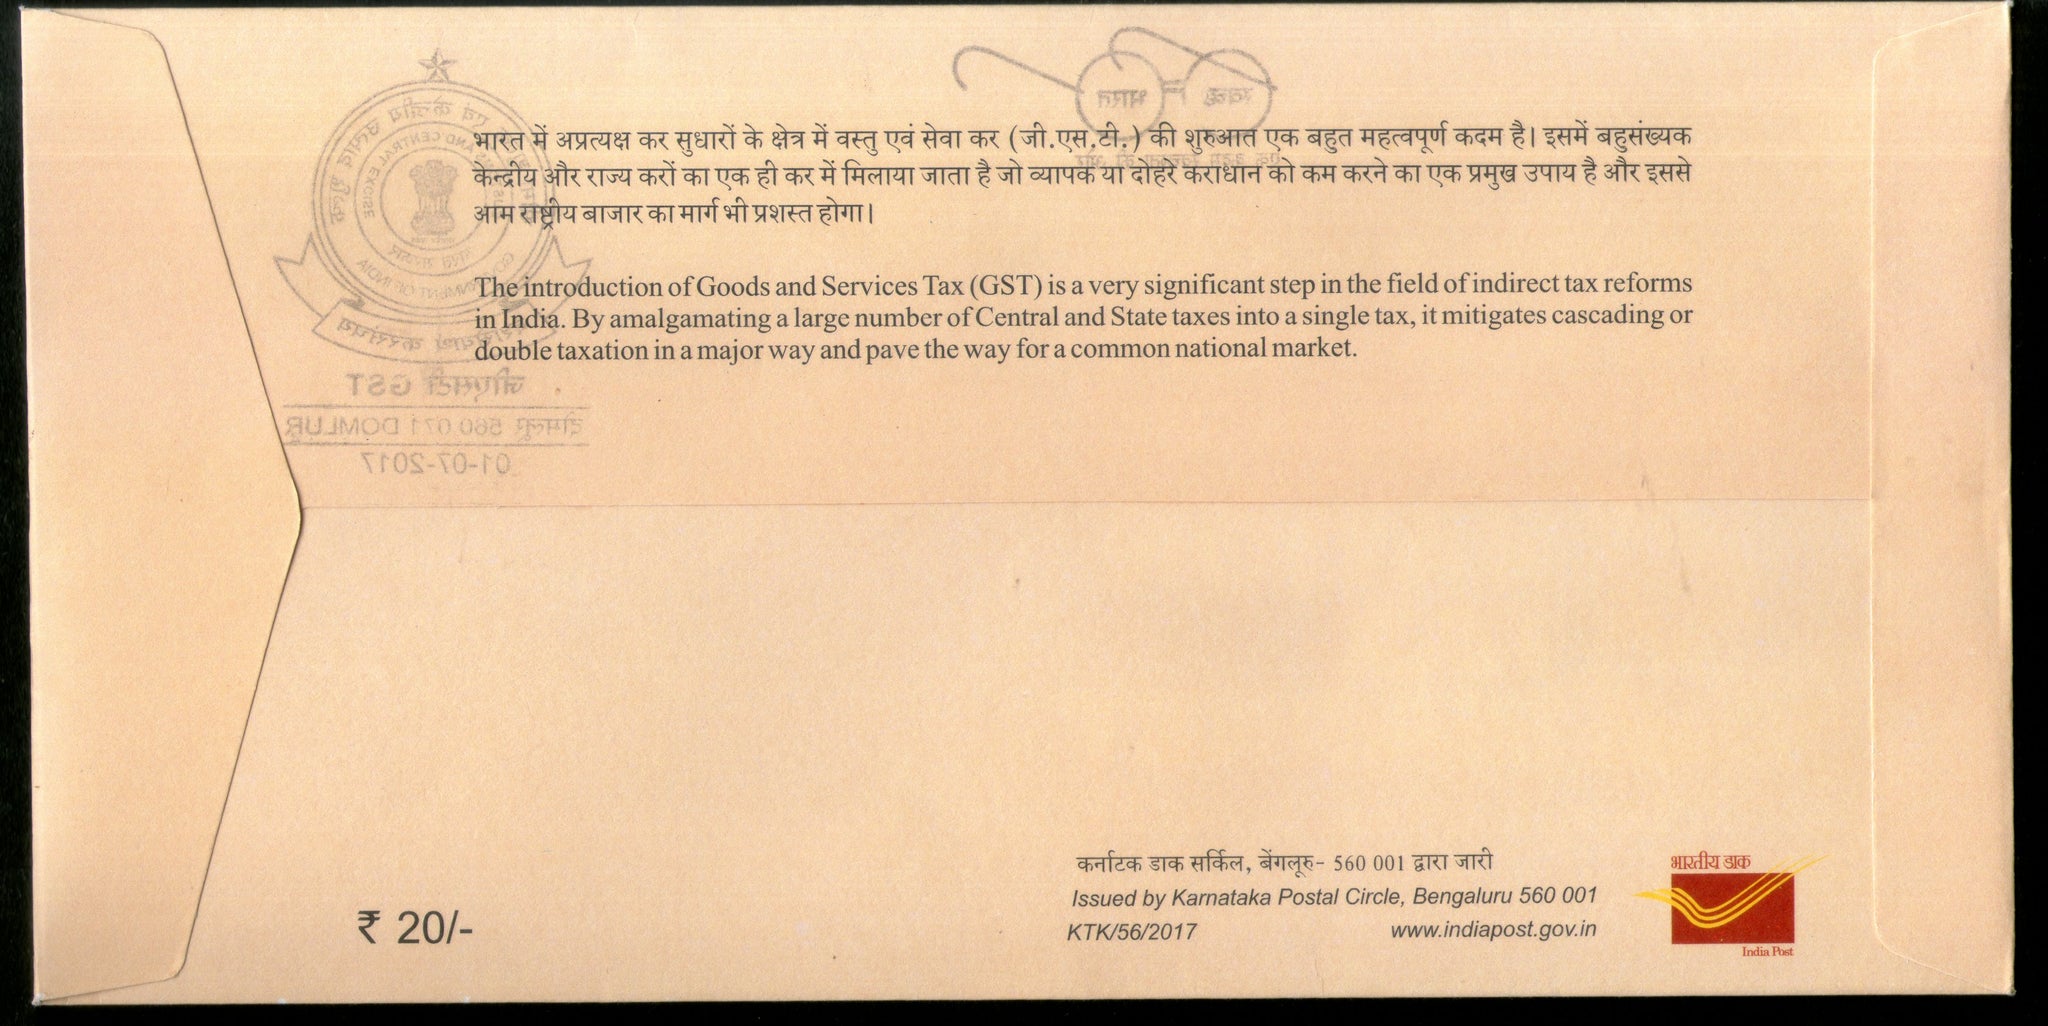 भारत में अप्रत्यक्ष कर सुधारों के क्षेत्र में वस्तु एवं सेवा कर (जी.एस.टी.) की शुरुआत एक बहुत महत्वपूर्ण कदम है। इसमें बहुसंख्यक
केन्द्रीय और राज्य करों का एक ही कर में मिलाया जाता है जो व्यापक या दोहरे कराधान को कम करने का एक प्रमुख उपाय है और इससे
आम राष्ट्रीय बाजार का मार्ग भी प्रशस्त होगा।
The introduction of Goods and Services Tax (GST) is a very significant step in the field of indirect tax reforms
in India. By amalgamating a large number of Central and State taxes into a single tax, it mitigates cascading or
double taxation in a major way and pave the way for a common national market.
जीएसटी GST
दोमलूर 560 071 DOMLUR
01-07-2017
स्वच्छ भारत
कर्नाटक डाक सर्किल, बेंगलूरु- 560 001 द्वारा जारी
Issued by Karnataka Postal Circle, Bengaluru 560 001
KTK/56/2017 www.indiapost.gov.in
₹ 20/-
भारतीय डाक
India Post